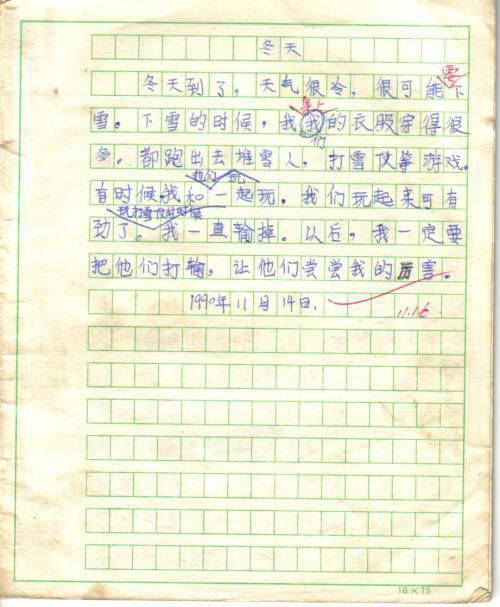 冬天
冬天到了，天气很冷，很可能要下
雪。下雪的时候，我身上我们的衣服穿得很
多。都跑出去堆雪人，打雪仗等游戏。
有时候我和他们玩一起玩。我们玩起来可有
劲了。玩打雪仗的时候我一直输掉。以后，我一定要
把他们打输，让他们尝尝我的厉害。
1990年11月14日.
11.16
16×15